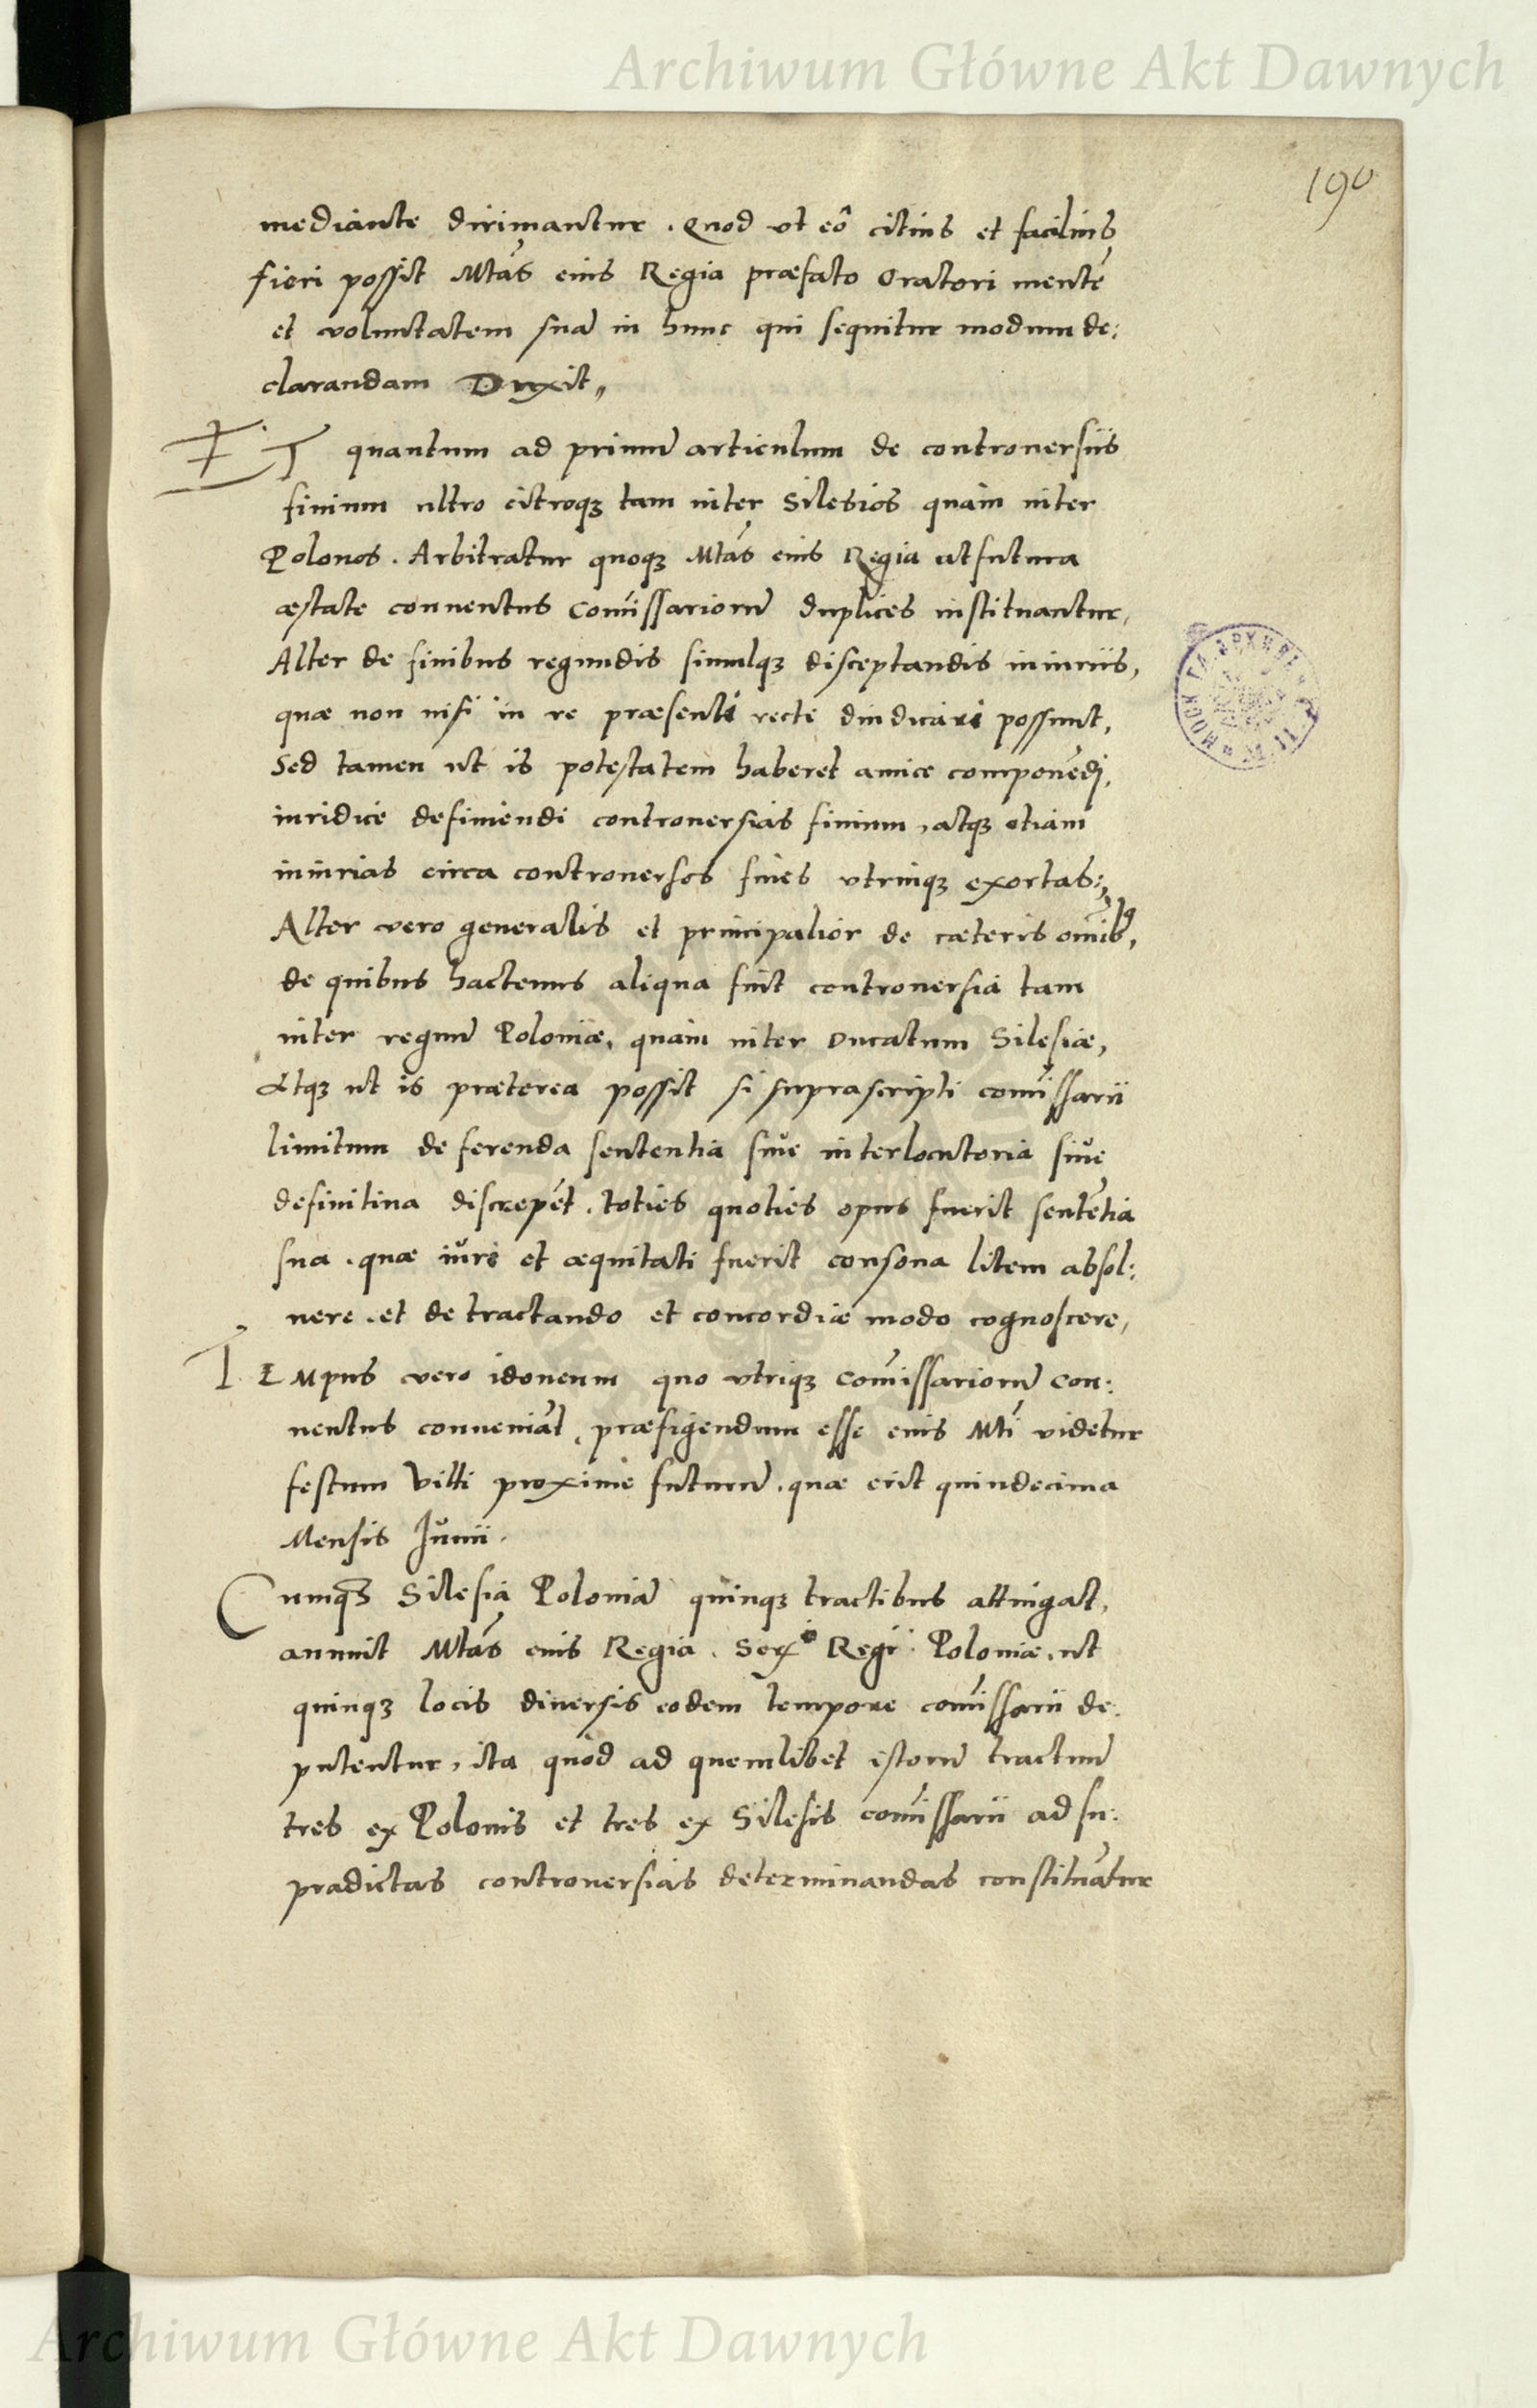 Archiwum Główne Akt Dawnych
190
mediante dirimantur. Quod ut eô citius et facilius
fieri possit Mtás eius Regia præfato Oratori mentē
et voluntatem suā in hunc qui sequitur modum de:
clarandam Duxit,,
ET quantum ad primū articulum de controuersiis
finium ultro citroqꝫ tam inter Silesios quàm inter
Polonos. Arbitratur quoqꝫ Mtás eius Regia ut futura
æstate conuentus Com̄issariorū duplices instituantur,
Alter de finibus regundis simulqꝫ disceptandis iniuriis,
quæ non nisi in re præsenti recte diiudicari possunt,
Sed tamen ut is potestatem haberet amice componēdi,
iuridicè definiendi controuersias finium, atqꝫ etiam
iniurias circa controuersos fines utrinqꝫ exortas:,
Alter vero generalis et principalior de cæteris om̄ibꝰ,
de quibus hactenus aliqua fuit controuersia tam
inter regnū Poloniæ, quàm inter Ducatum Silesiæ,
Atqꝫ ut is præterea possit si suprascripti com̄issarii
limitum de ferenda sententia siue interlocutoria siue
definitiua discrepēt. toties quoties opus fuerit sentētia
sua. quæ iuri et æquitati fuerit consona litem absol:
uere. et de tractando et concordiæ modo cognoscere,
TEMpus vero idoneum quo utriqꝫ Com̄issariorū con:
uentus conueniāt, præfigendum esse eius Mti videtur
festum Viti proxime futurū. quæ erit quindecima
Mensis Junii.
Cumqꝫ Silesia Poloniā quinqꝫ tractibus attingat,
annuit Mtás eius Regia. Serᵒ Regi Poloniæ, ut
quinqꝫ locis diuersis eodem tempore com̄issarii de:
putentur, ita quòd ad quemlibet istorū tractuū
tres ex Polonis et tres ex Silesis com̄issarii ad su:
pradictas controuersias determinandas constituātur
Archiwum Główne Akt Dawnych